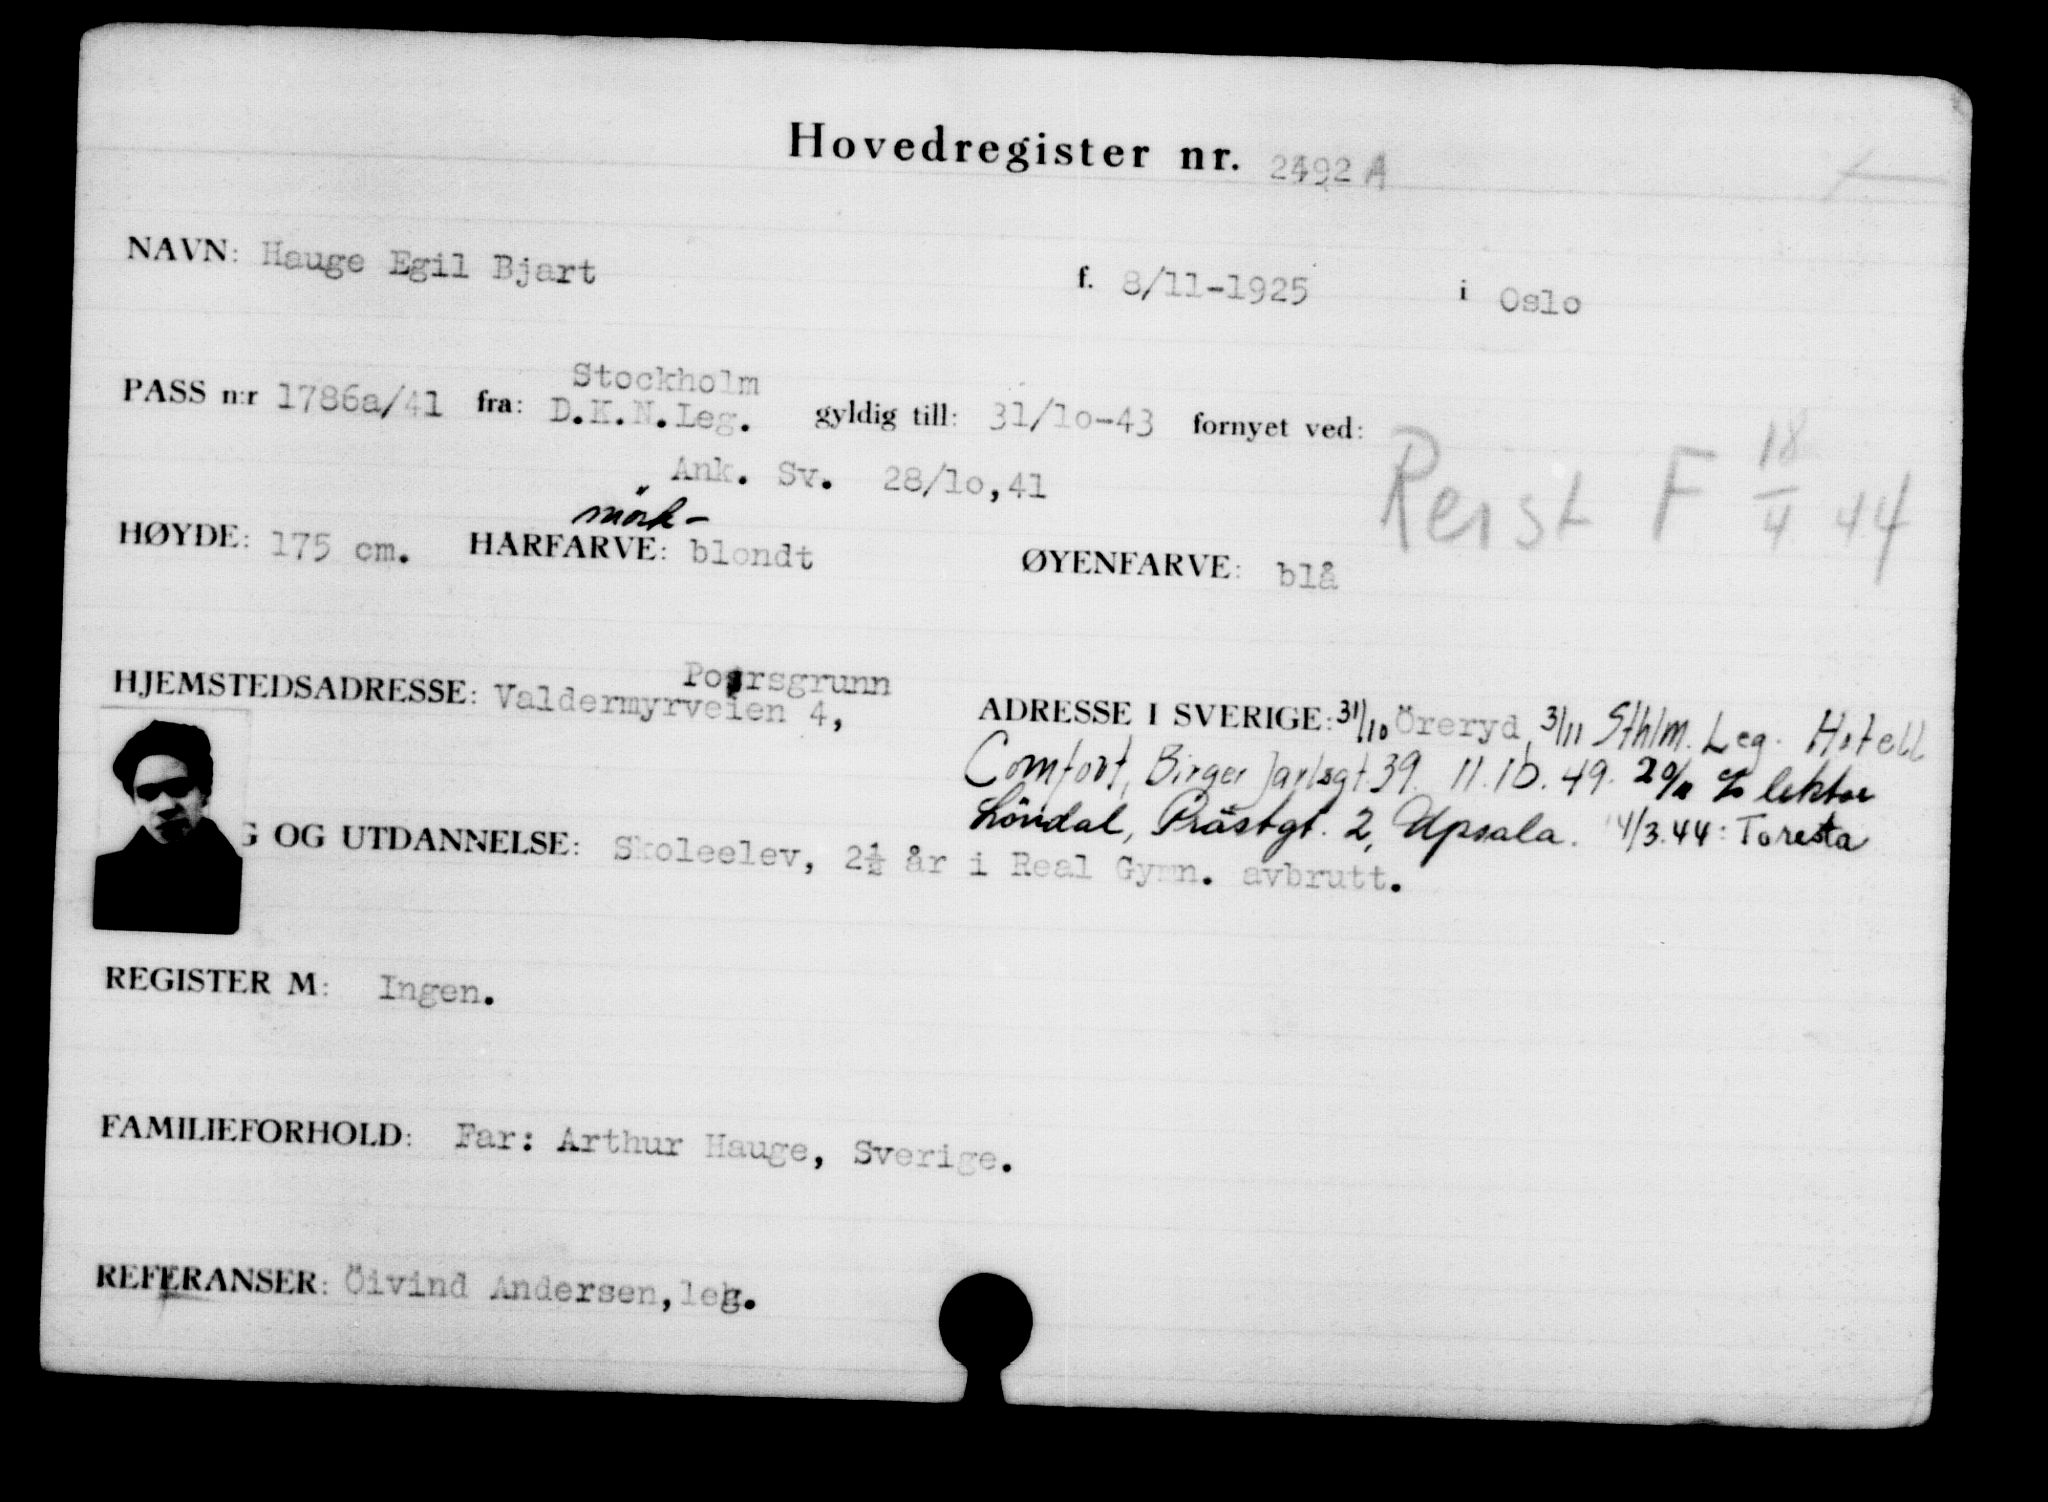 Hovedregister nr. 2492 A
NAVN: Hauge Egil Bjart f. 8/11-1925 i Oslo
Stockholm
PASS n:r 1786a/41 fra: D.K.N.Leg. gyldig till: 31/10-43 fornyet ved:
Ank. Sv. 28/10,41
Reist F 18/4 44
mörk-
HØYDE: 175 cm. HARFARVE: blondt ØYENFARVE: blå
Porsgrunn
HJEMSTEDSADRESSE: Valdermyrveien 4,
ADRESSE I SVERIGE: 31/10 Öreryd, 3/11 Sthlm. Leg. Hotell
Comfort, Birger Jarlsgt. 39. 11.10.49. c/o lektor
Löndal, Prästgt. 2, Upsala. 4/3.44: Toresta
G OG UTDANNELSE: Skoleelev, 2½ år i Real Gymn. avbrutt.
REGISTER M: Ingen.
FAMILIEFORHOLD: Far: Arthur Hauge, Sverige.
REFERANSER: Öivind Andersen, leg.